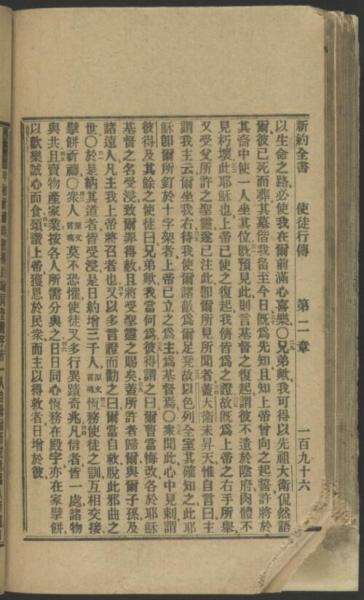 新約全書 使徒行傳 第二章 一百九十六
以生命之路必使我在爾前滿心喜樂○兄弟歟我可得以先祖大衛侃然語
爾彼已死而葬其墓偕我畱至今日旣為先知且知上帝曾向之起誓許將於
其裔中使一人坐其位旣預見此則言基督之復起謂彼不遺於陰府肉體不
見朽壞此耶穌也上帝已使之復起我儕皆為之證故旣為上帝之右手所舉
又受父所許之聖靈遂已注此即爾所見所聞者蓋大衛未昇天惟自言曰主
謂我主云爾坐我右待我使爾諸敵為爾足凳故以色列全家其確知之此耶
穌即爾所釘於十字架者上帝已立之為主為基督焉○衆聞此心中見刺謂
彼得及其餘之使徒曰兄弟歟我當何為彼得謂之曰爾曹當悔改各於耶穌
基督之名受浸致爾罪得赦且將受聖靈之賜矣蓋所許者歸爾與爾子孫及
諸遠人凡主我上帝將召者也又以多言證而勸之曰爾當自救脫此邪曲之
世○於是納其道者皆受浸是日約增三千人恆務使徒之訓互相交接
擘餅祈禱○衆人莫不恐懼使徒又多行異蹟奇兆凡信者皆一處諸物
與共且賣物產家業按各人所需分與之日日同心恆務在殿宇亦在家擘餅
以歡樂誠心而食頌讚上帝獲恩於民衆而主以得救者日增於彼